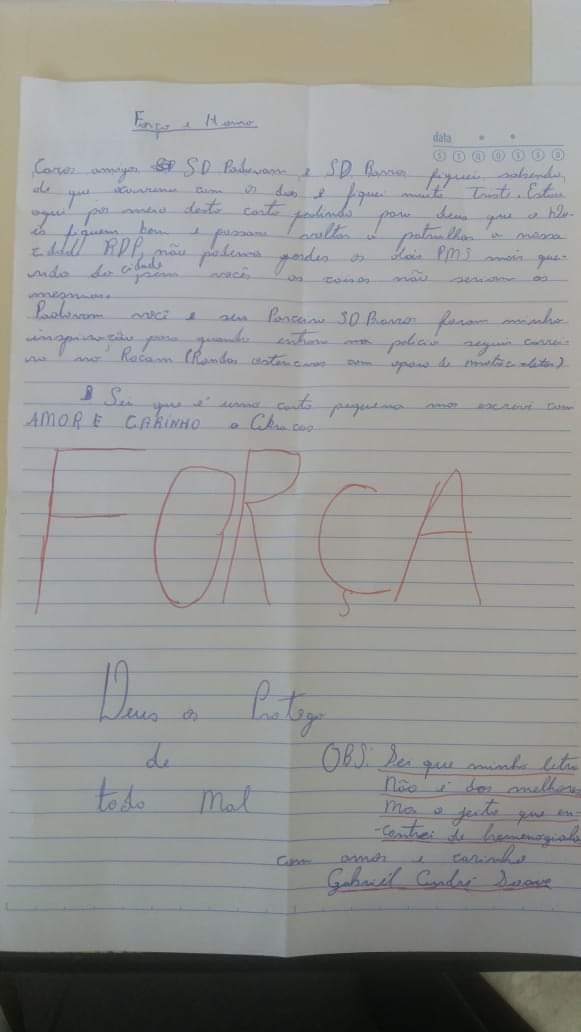 Força e Honra
data
S T Q Q S S D
Caros amigos SD Padovam e SD. Barros fiquei sabendo
de que ocorreu com os dois e fiquei muito Triste. Estou
aqui por meio desta carta pedindo para Deus que o
fiquem bem e possam voltar a patrulhar a nossa
cidade RDP não podemos perder os dois PMS mais que-
rido da cidade sem vocês as coisas não seriam as
mesmas.
Padovam você e seu Parceiro SD Barros foram minha
inspiração para quando entrar na policia seguir carrei-
ra na Rocam (Rondas ostensivas com apoio de motocicletas)
Sei que é uma carta pequena mas escrevi com
AMOR E CARINHO a
FORÇA
Deus os Protega
de
todo Mal
OBS: Sei que minha letra
Não é das melhores
Mas o jeito que en-
-contrei de
com amor e carinho
Gabriel André